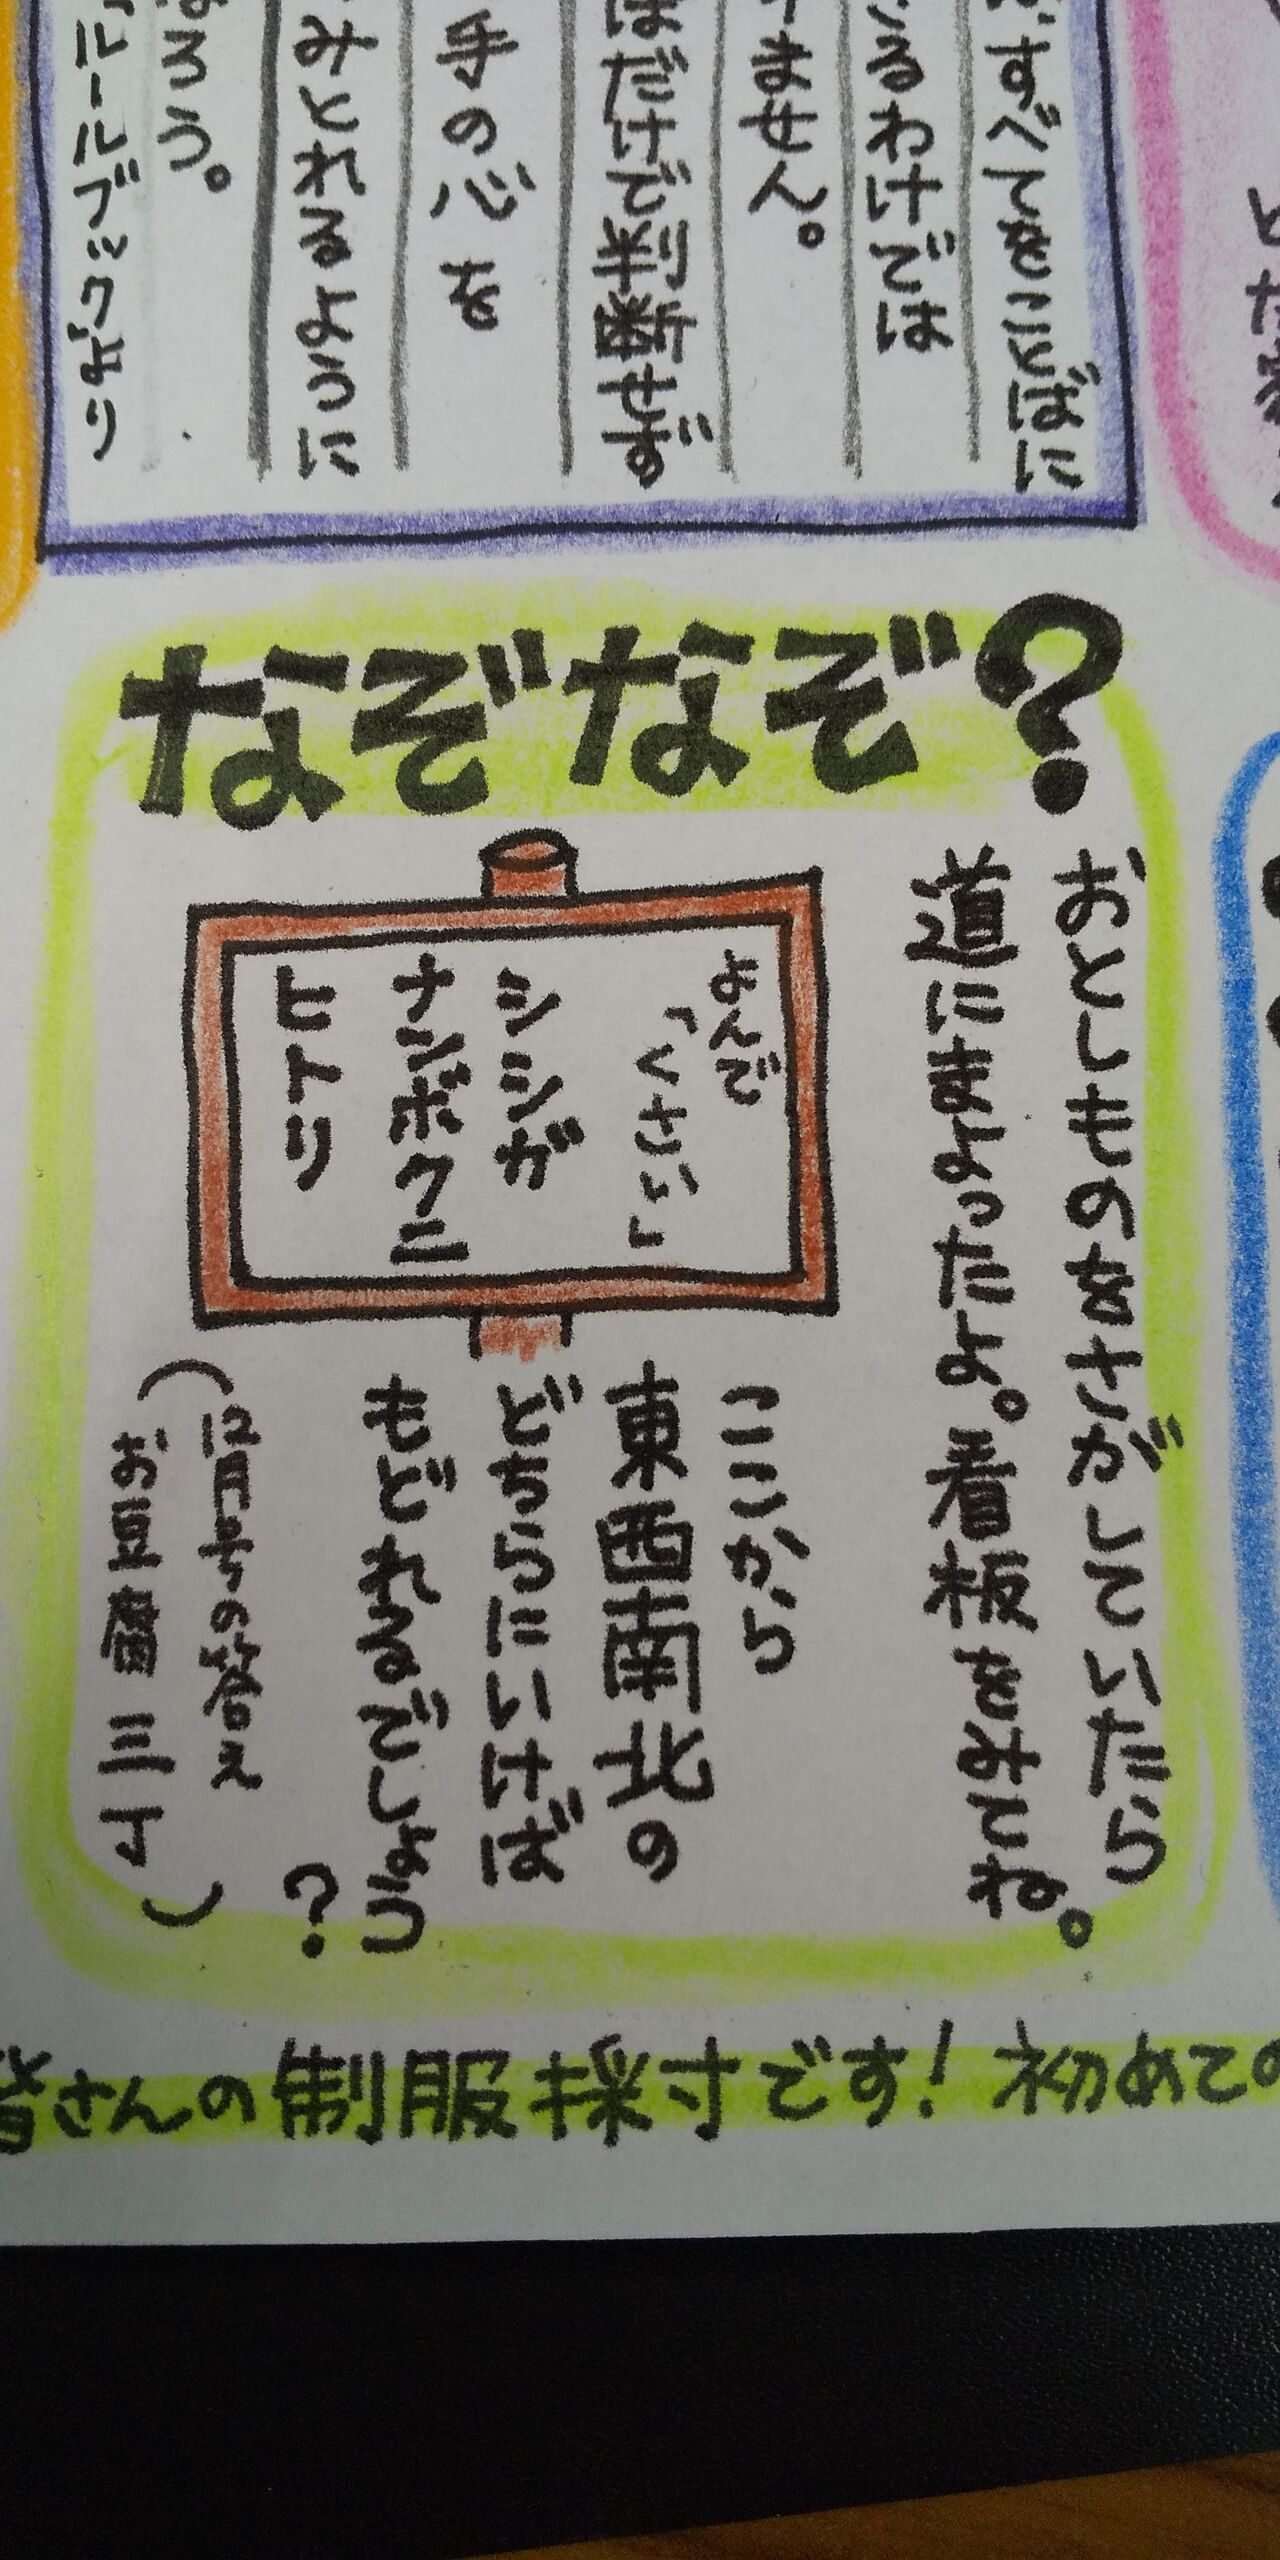 すべてをことばに
るわけでは
ません。
ばだけで判断せず
手の心を
みとれるように
ろう。
ルールブックより
なぞなぞ?
おとしものをさがしていたら
道にまよったよ。看板をみてね。
よんで
「くさい」
シシガ
ナンボクニ
ヒトリ
ここから
東西南北の
どちらにいけば
もどれるでしょう
?
(12月号の答え
お豆腐三丁)
皆さんの制服採寸です!初めての